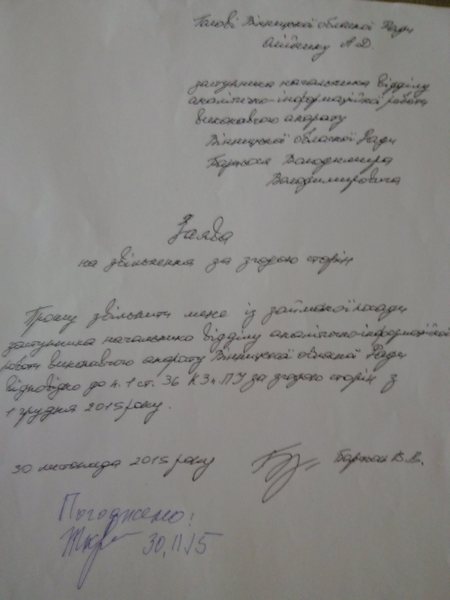 Голові Вінницької обласної Ради
Олійнику А.Д.
заступника начальника відділу
аналітично-інформаційної роботи
виконавчого апарату
Вінницької обласної Ради
Володимира
Володимировича
Заява
на звільнення за згодою сторін
Прошу звільнити мене із займаної посади
заступника начальника відділу аналітично-інформаційної
роботи виконавчого апарату Вінницької обласної Ради
відповідно до п. 1 ст. 36 КЗпПУ за згодою сторін з
1 грудня 2015 року.
30 листопада 2015 року В.В.
Погоджено!
30.11.15